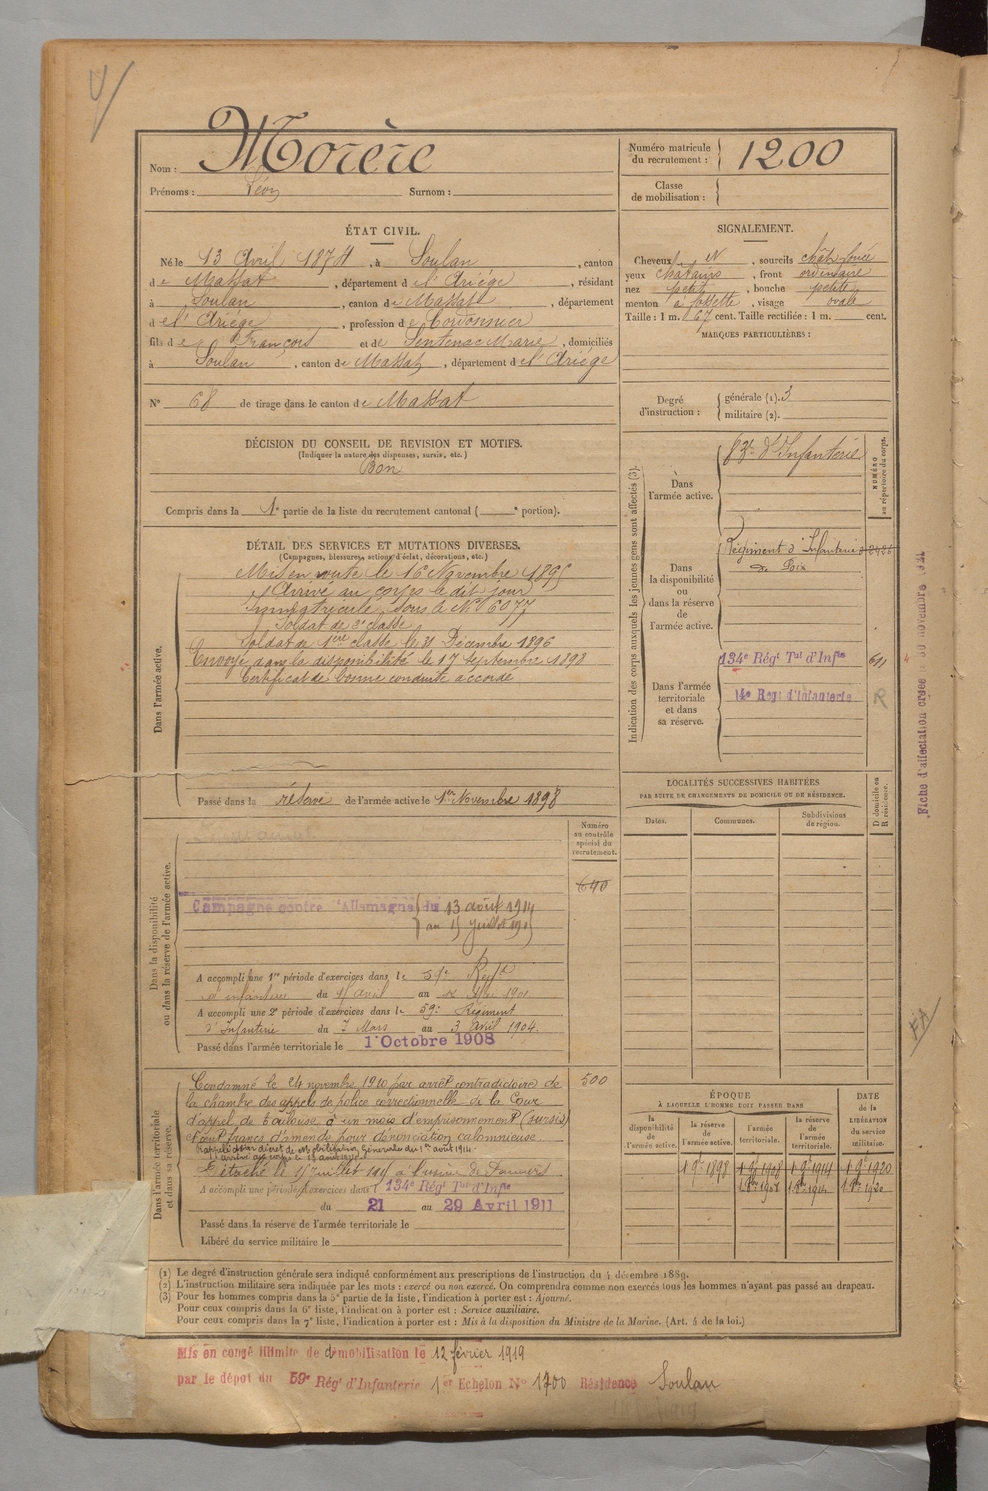 Nom : Morère
Prénoms : Léon Surnom :
Numéro matricule du recrutement : 1200
Classe de mobilisation :
ÉTAT CIVIL.
Né le 13 Avril 1874, à Soulan, canton
de Massat, département de l'Ariège, résidant
à Soulan, canton de Massat, département
de l'Ariège, profession de Cordonnier
fils de François et de Sentenac Marie, domiciliés
à Soulan, canton de Massat, département de l'Ariège
N° 68 de tirage dans le canton de Massat
SIGNALEMENT.
Cheveux N, sourcils chât. foncé
yeux châtains, front ordinaire
nez petit, bouche petite
menton à fossette, visage ovale
Taille : 1 m. 67 cent. Taille rectifiée : 1 m. cent.
MARQUES PARTICULIÈRES :
Degré d'instruction : générale (1). 3
militaire (2).
DÉCISION DU CONSEIL DE REVISION ET MOTIFS.
(Indiquer la nature des dispenses, sursis, etc.)
Bon
Compris dans la 1e partie de la liste du recrutement cantonal ( e portion).
DÉTAIL DES SERVICES ET MUTATIONS DIVERSES.
(Campagnes, blessures, actions d'éclat, décorations, etc.)
Dans l'armée active.
Mis en route le 16 Novembre 1895
Arrivé au corps le dit jour
Immatriculé sous le N° 6077
Soldat de 2e classe
Soldat de 1ère classe le 31 Décembre 1896
Envoyé dans la disponibilité le 17 Septembre 1898
Certificat de bonne conduite accordé
Passé dans la réserve de l'armée active le 1er Novembre 1898
Indication des corps auxquels les jeunes gens sont affectés (3).
NUMÉRO au répertoire du corps.
Dans l'armée active.
83e d'Infanterie
Dans la disponibilité ou dans la réserve de l'armée active.
Régiment d'Infanterie
de Foix
Dans l'armée territoriale et dans sa réserve.
134e Régt Tal d'Infie 611
14e Regt d'Infanterie R
Fiche d'affectation créée le 30 novembre 1921
LOCALITÉS SUCCESSIVES HABITÉES
PAR SUITE DE CHANGEMENTS DE DOMICILE OU DE RÉSIDENCE.
Dates. Communes. Subdivisions de région. D domicile ou R résidence.
Dans la disponibilité ou dans la réserve de l'armée active.
Numéro au contrôle spécial du recrutement.
640
Campagne contre l'Allemagne du 13 août 1914
au 15 Juillet 1915
A accompli une 1re période d'exercices dans le 59e Regt
d'infanterie du
A accompli une 2e période d'exercices dans le 59e Régiment
d'Infanterie du 7 Mars au 3 avril 1904.
Passé dans l'armée territoriale le 1er Octobre 1908
Dans l'armée territoriale et dans sa réserve.
500
Condamné le 24 novembre 1910 par arrêt contradictoire de
la chambre des appels de police correctionnelle de la Cour
d'appel de Toulouse à un mois d'emprisonnement (sursis)
et francs d'amende pour dénonciation calomnieuse.
Rappelé par décret de Mobilisation Générale du 1er août 1914
Arrivé au corps le 13 août 1914
Détaché le 15 Juillet 1915 à l'usine de Pamiers
A accompli une période d'exercices dans l 134e Régt Tal d'Infie
du 21 au 29 Avril 1911
Passé dans la réserve de l'armée territoriale le
Libéré du service militaire le
FA
ÉPOQUE
À LAQUELLE L'HOMME DOIT PASSER DANS
DATE de la LIBÉRATION du service militaire.
la disponibilité de l'armée active. la réserve de l'armée active. l'armée territoriale. la réserve de l'armée territoriale.
1 9e 1898 1 9e 1908 1 9e 1914 1 9e 1920
1 8bre 1908 1 8bre 1914 1 8bre 1920
(1) Le degré d'instruction générale sera indiqué conformément aux prescriptions de l'instruction du 4 décembre 1889.
(2) L'instruction militaire sera indiquée par les mots : exercé ou non exercé. On comprendra comme non exercés tous les hommes n'ayant pas passé au drapeau.
(3) Pour les hommes compris dans la 5e partie de la liste, l'indication à porter est : Ajourné.
Pour ceux compris dans la 6e liste, l'indication à porter est : Service auxiliaire.
Pour ceux compris dans la 7e liste, l'indication à porter est : Mis à la disposition du Ministre de la Marine. (Art. 4 de la loi.)
Mis en congé illimité de démobilisation le 12 février 1919
par le dépôt du 59e Régt d'Infanterie 1er Echelon N° 1700 Résidence Soulan